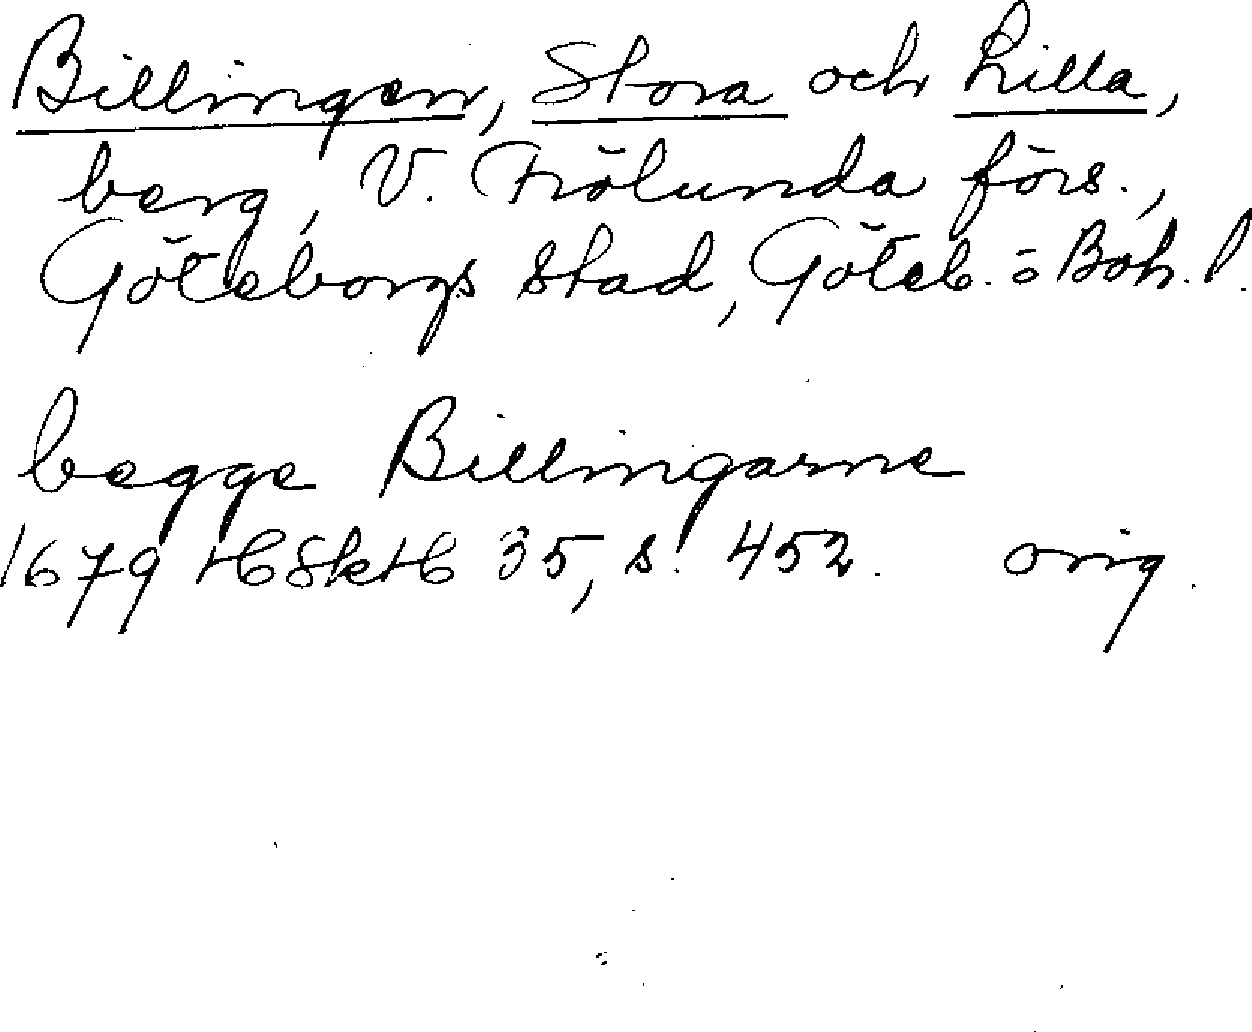 Billingen, Stora och Lilla,
berg, V. Frölunda förs.,
Göteborgs stad, Göteb. o Boh. l.
begge Billingarne
1679 HSkH 35, s. 452. orig.